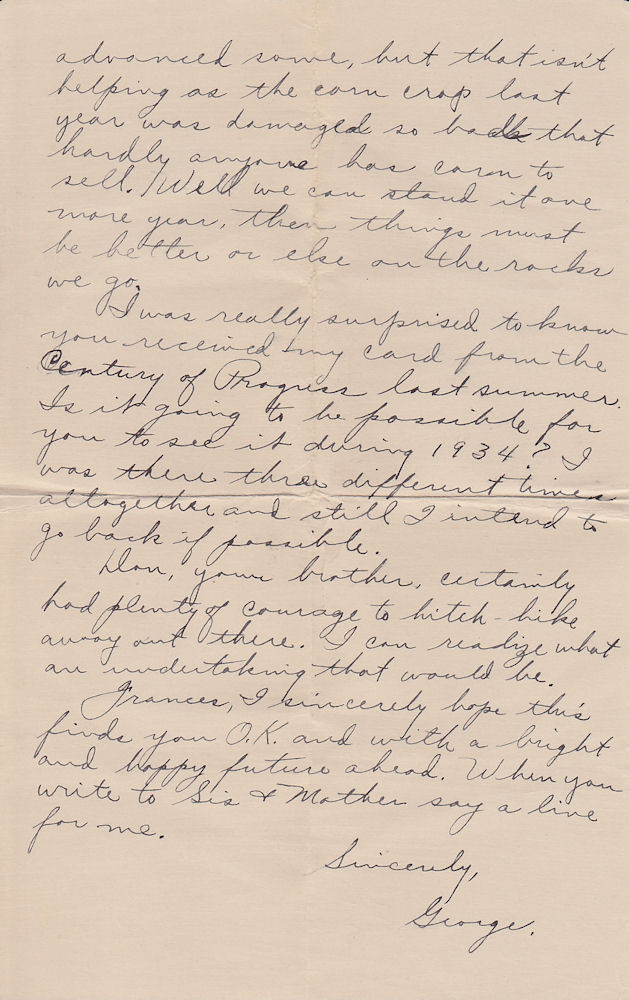 advanced some, but that isn't
helping as the corn crop last
year was damaged so badly that
hardly anyone has corn to
sell. Well we can stand it one
more year, then things must
be better or else on the rocks
we go.
I was really surprised to know
you received my card from the
Century of Progress last summer.
Is it going to be possible for
you to see it during 1934? I
was there three different times
altogether and still I intend to
go back if possible.
Don, your brother, certainly
had plenty of courage to hitch-hike
away out there. I can realize what
an undertaking that would be.
Frances, I sincerely hope this
finds you O.K. and with a bright
and happy future ahead. When you
write to Sis & Mother say a line
for me.
Sincerely,
George.